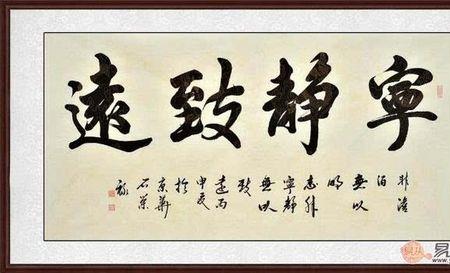 寧靜致遠
非澹
泊
無以
明
志非
寧靜
無以
致
遠丙
申夏
於
京華
石榮
禄
易